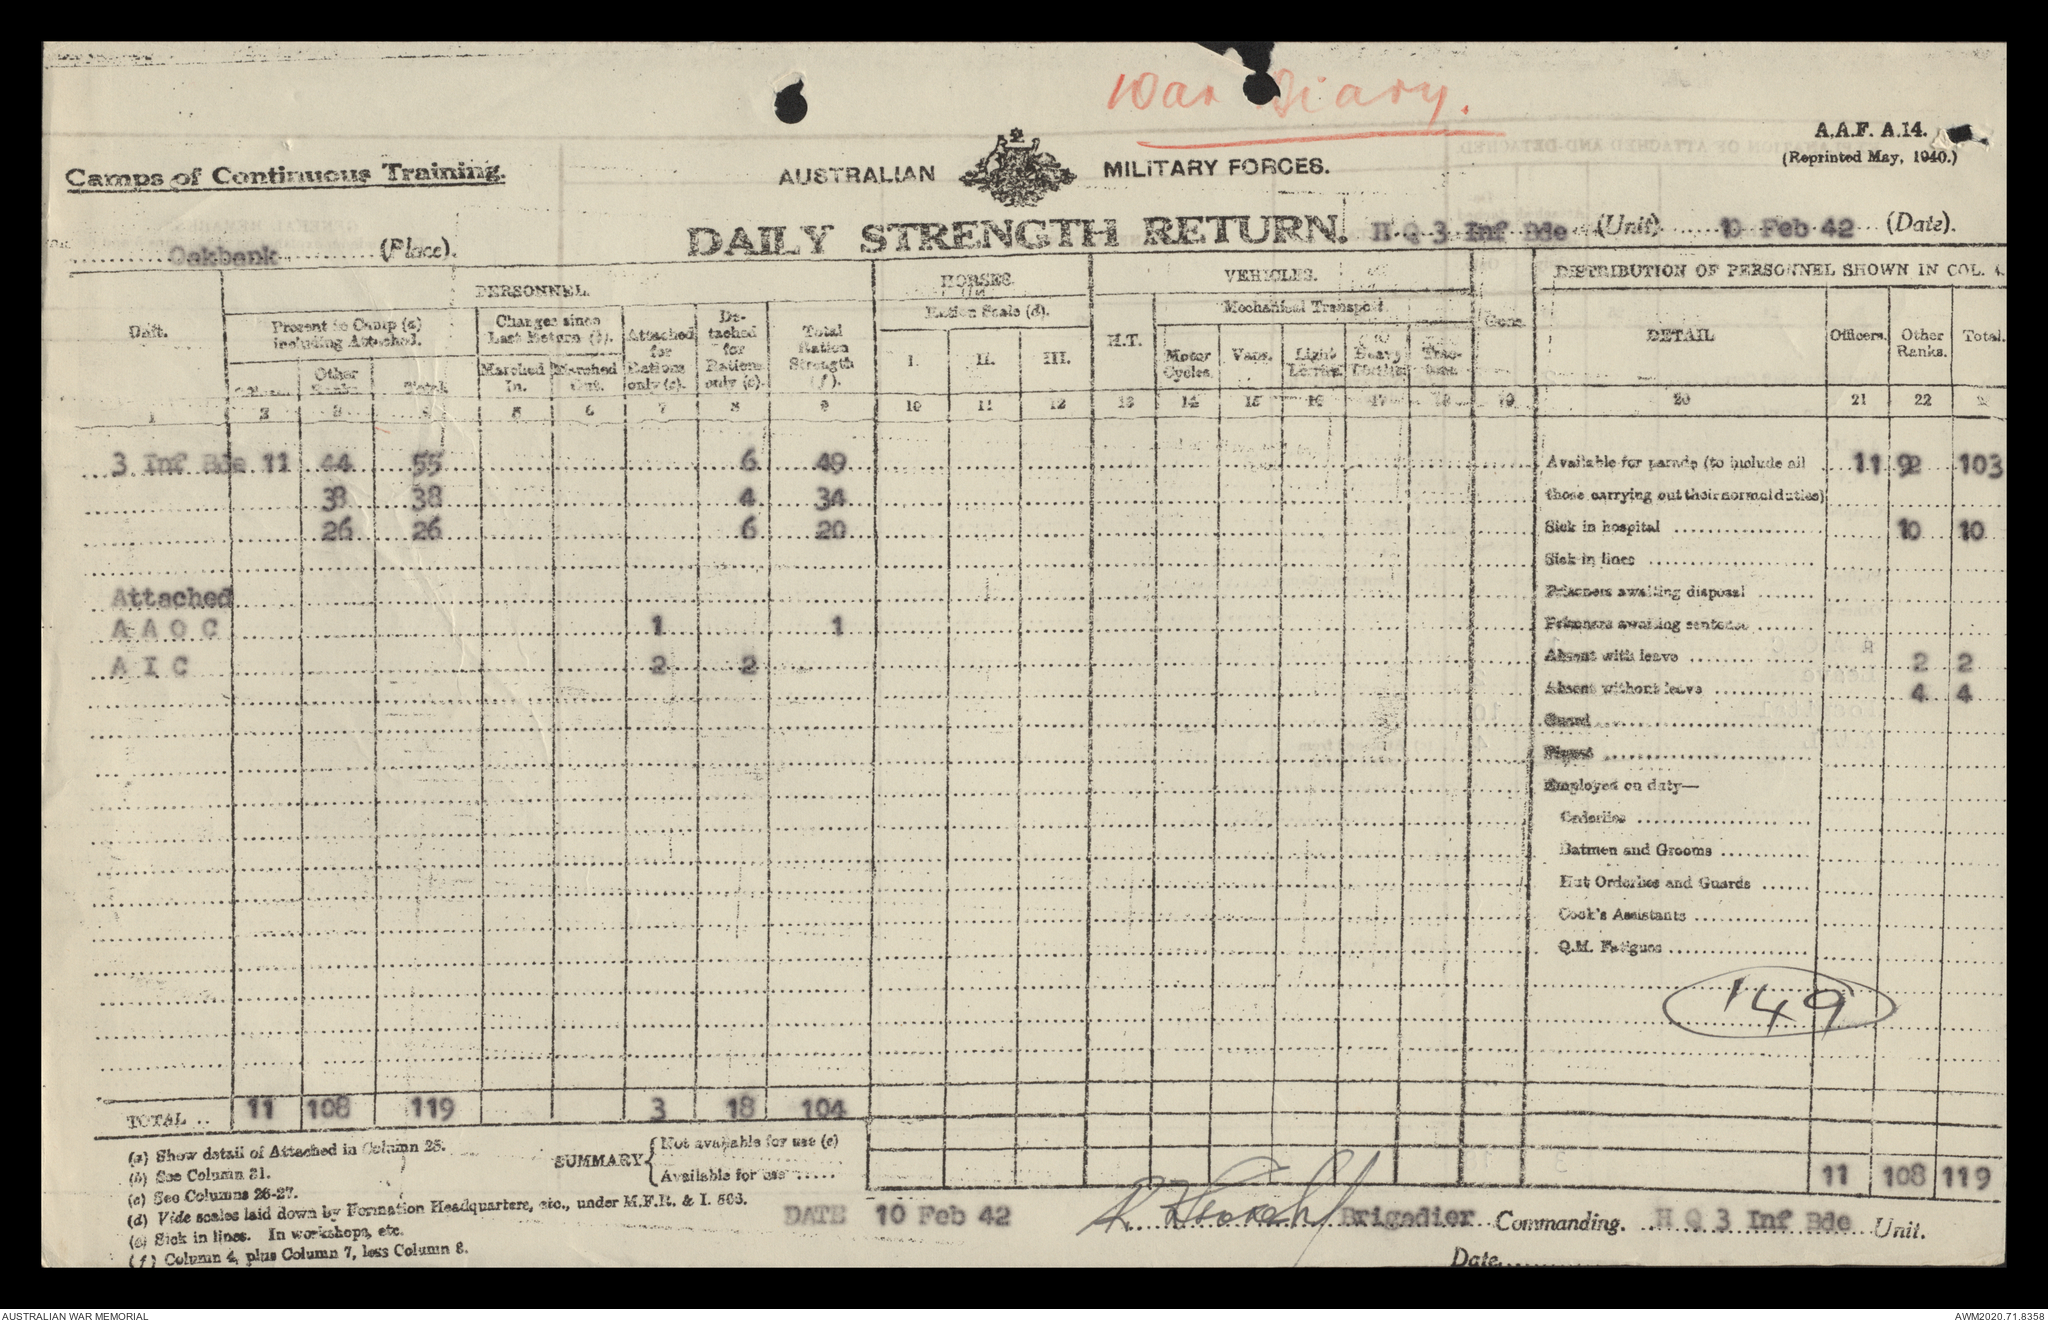 War Diary.
A.A.F. A.14.
(Reprinted May, 1940.)
Camps of Continuous Training.
AUSTRALIAN MILITARY FORCES.
DAILY STRENGTH RETURN. H Q 3 Inf Bde (Unit) 10 Feb 42 (Date).
Oakbank (Place).
PERSONNEL. HORSES. VEHICLES. DISTRIBUTION OF PERSONNEL SHOWN IN COL. 4.
Unit. Present in Camp (a) including Attached. Changes since Last Return (b). Attached for Rations only (c). Detached for Rations only (c). Total Ration Strength (f). Ration Scale (d). H.T. Mechanical Transport. Guns. DETAIL Officers. Other Ranks. Total.
Officers. Other Ranks. Total. Marched In. Marched Out. I. II. III. Motor Cycles. Vans. Light Lorries. Heavy Lorries. Tractors.
1 2 3 4 5 6 7 8 9 10 11 12 13 14 15 16 17 18 19 20 21 22
3 Inf Bde 11 44 55 6 49 Available for parade (to include all 11 92 103
38 38 4 34 those carrying out their normal duties)
26 26 6 20 Sick in hospital 10 10
Sick in lines
Attached Prisoners awaiting disposal
A A O C 1 1 Prisoners awaiting sentence
A I C 2 2 Absent with leave 2 2
Absent without leave 4 4
Guard
Piquet
Employed on duty—
Orderlies
Batmen and Grooms
Hut Orderlies and Guards
Cook's Assistants
Q.M. Fatigues
149
TOTAL .. 11 108 119 3 18 104
(a) Show detail of Attached in Column 25. SUMMARY { Not available for use (e)
(b) See Column 31. Available for use ..... 11 108 119
(c) See Columns 26-27.
(d) Vide scales laid down by Formation Headquarters, etc., under M.F.R. & I. 503.
(e) Sick in lines. In workshops, etc.
(f) Column 4, plus Column 7, less Column 8.
DATE 10 Feb 42 Brigadier Commanding. H Q 3 Inf Bde Unit.
Date
AUSTRALIAN WAR MEMORIAL AWM2020.71.8358